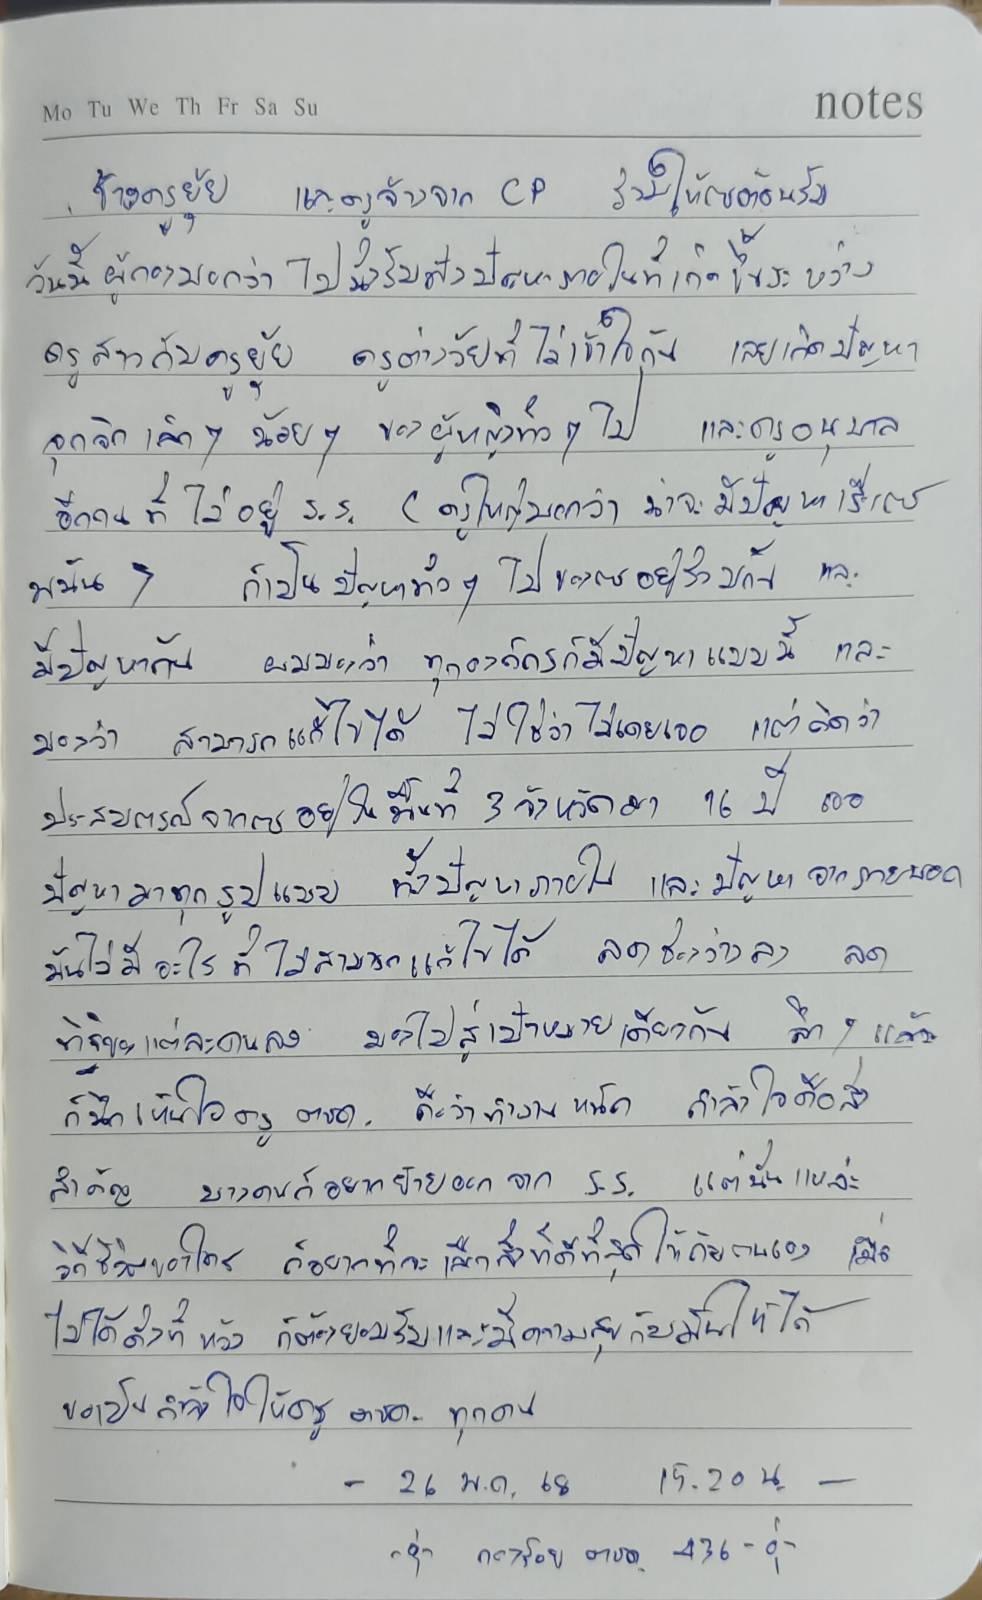 Mo Tu We Th Fr Sa Su
notes
ช้างครูยุ้ย และครูจ้างจาก CP ร่วมให้การต้อนรับ
วันนี้ ผู้กองบอกว่า ไปนั่งรับฟังปัญหาภายในที่เกิดขึ้นระหว่าง
ครูสาวกับครูยุ้ย ครูต่างวัยที่ไม่เข้าใจกัน เลยเกิดปัญหา
จุกจิกเล็กๆ น้อยๆ ของผู้หญิงทั่วๆไป และครูอนุบาล
อีกคนที่ไม่อยู่ ร.ร. (ครูใหญ่บอกว่า น่าจะมีปัญหาเรื่องการ
พนัน) ก็เป็นปัญหาทั่วๆ ไปของการอยู่ร่วมกัน และ
มีปัญหากัน ผมมองว่า ทุกองค์กรก็มีปัญหาแบบนี้ และ
มองว่า สามารถแก้ไขได้ ไม่ใช่ว่าไม่เคยเจอ แต่คิดว่า
ประสบการณ์จากการอยู่ในพื้นที่ 3 จังหวัดมา 16 ปี เจอ
ปัญหามาทุกรูปแบบ ทั้งปัญหาภายใน และปัญหาจากภายนอก
มันไม่มีอะไรที่ไม่สามารถแก้ไขได้ ลดช่องว่างลง ลด
ทิฐิของแต่ละคนลง มองไปสู่เป้าหมายเดียวกัน ลึกๆ แล้ว
ก็นึกเห็นใจครู ตชด. ถือว่าทำงานหนัก กำลังใจคือสิ่ง
สำคัญ บางคนก็อยากย้ายออกจาก ร.ร. แต่นั่นแหล่ะ
วิถีชีวิตของใคร ก็อยากที่จะเลือกสิ่งที่ดีที่สุดให้กับตนเอง เมื่อ
ไม่ได้ดั่งที่หวัง ก็ต้องยอมรับและมีความสุขกับมันให้ได้
ขอเป็นกำลังใจให้ครู ตชด. ทุกคน
- 26 พ.ค. 68 15.20 น. -
กองร้อย ตชด. 436